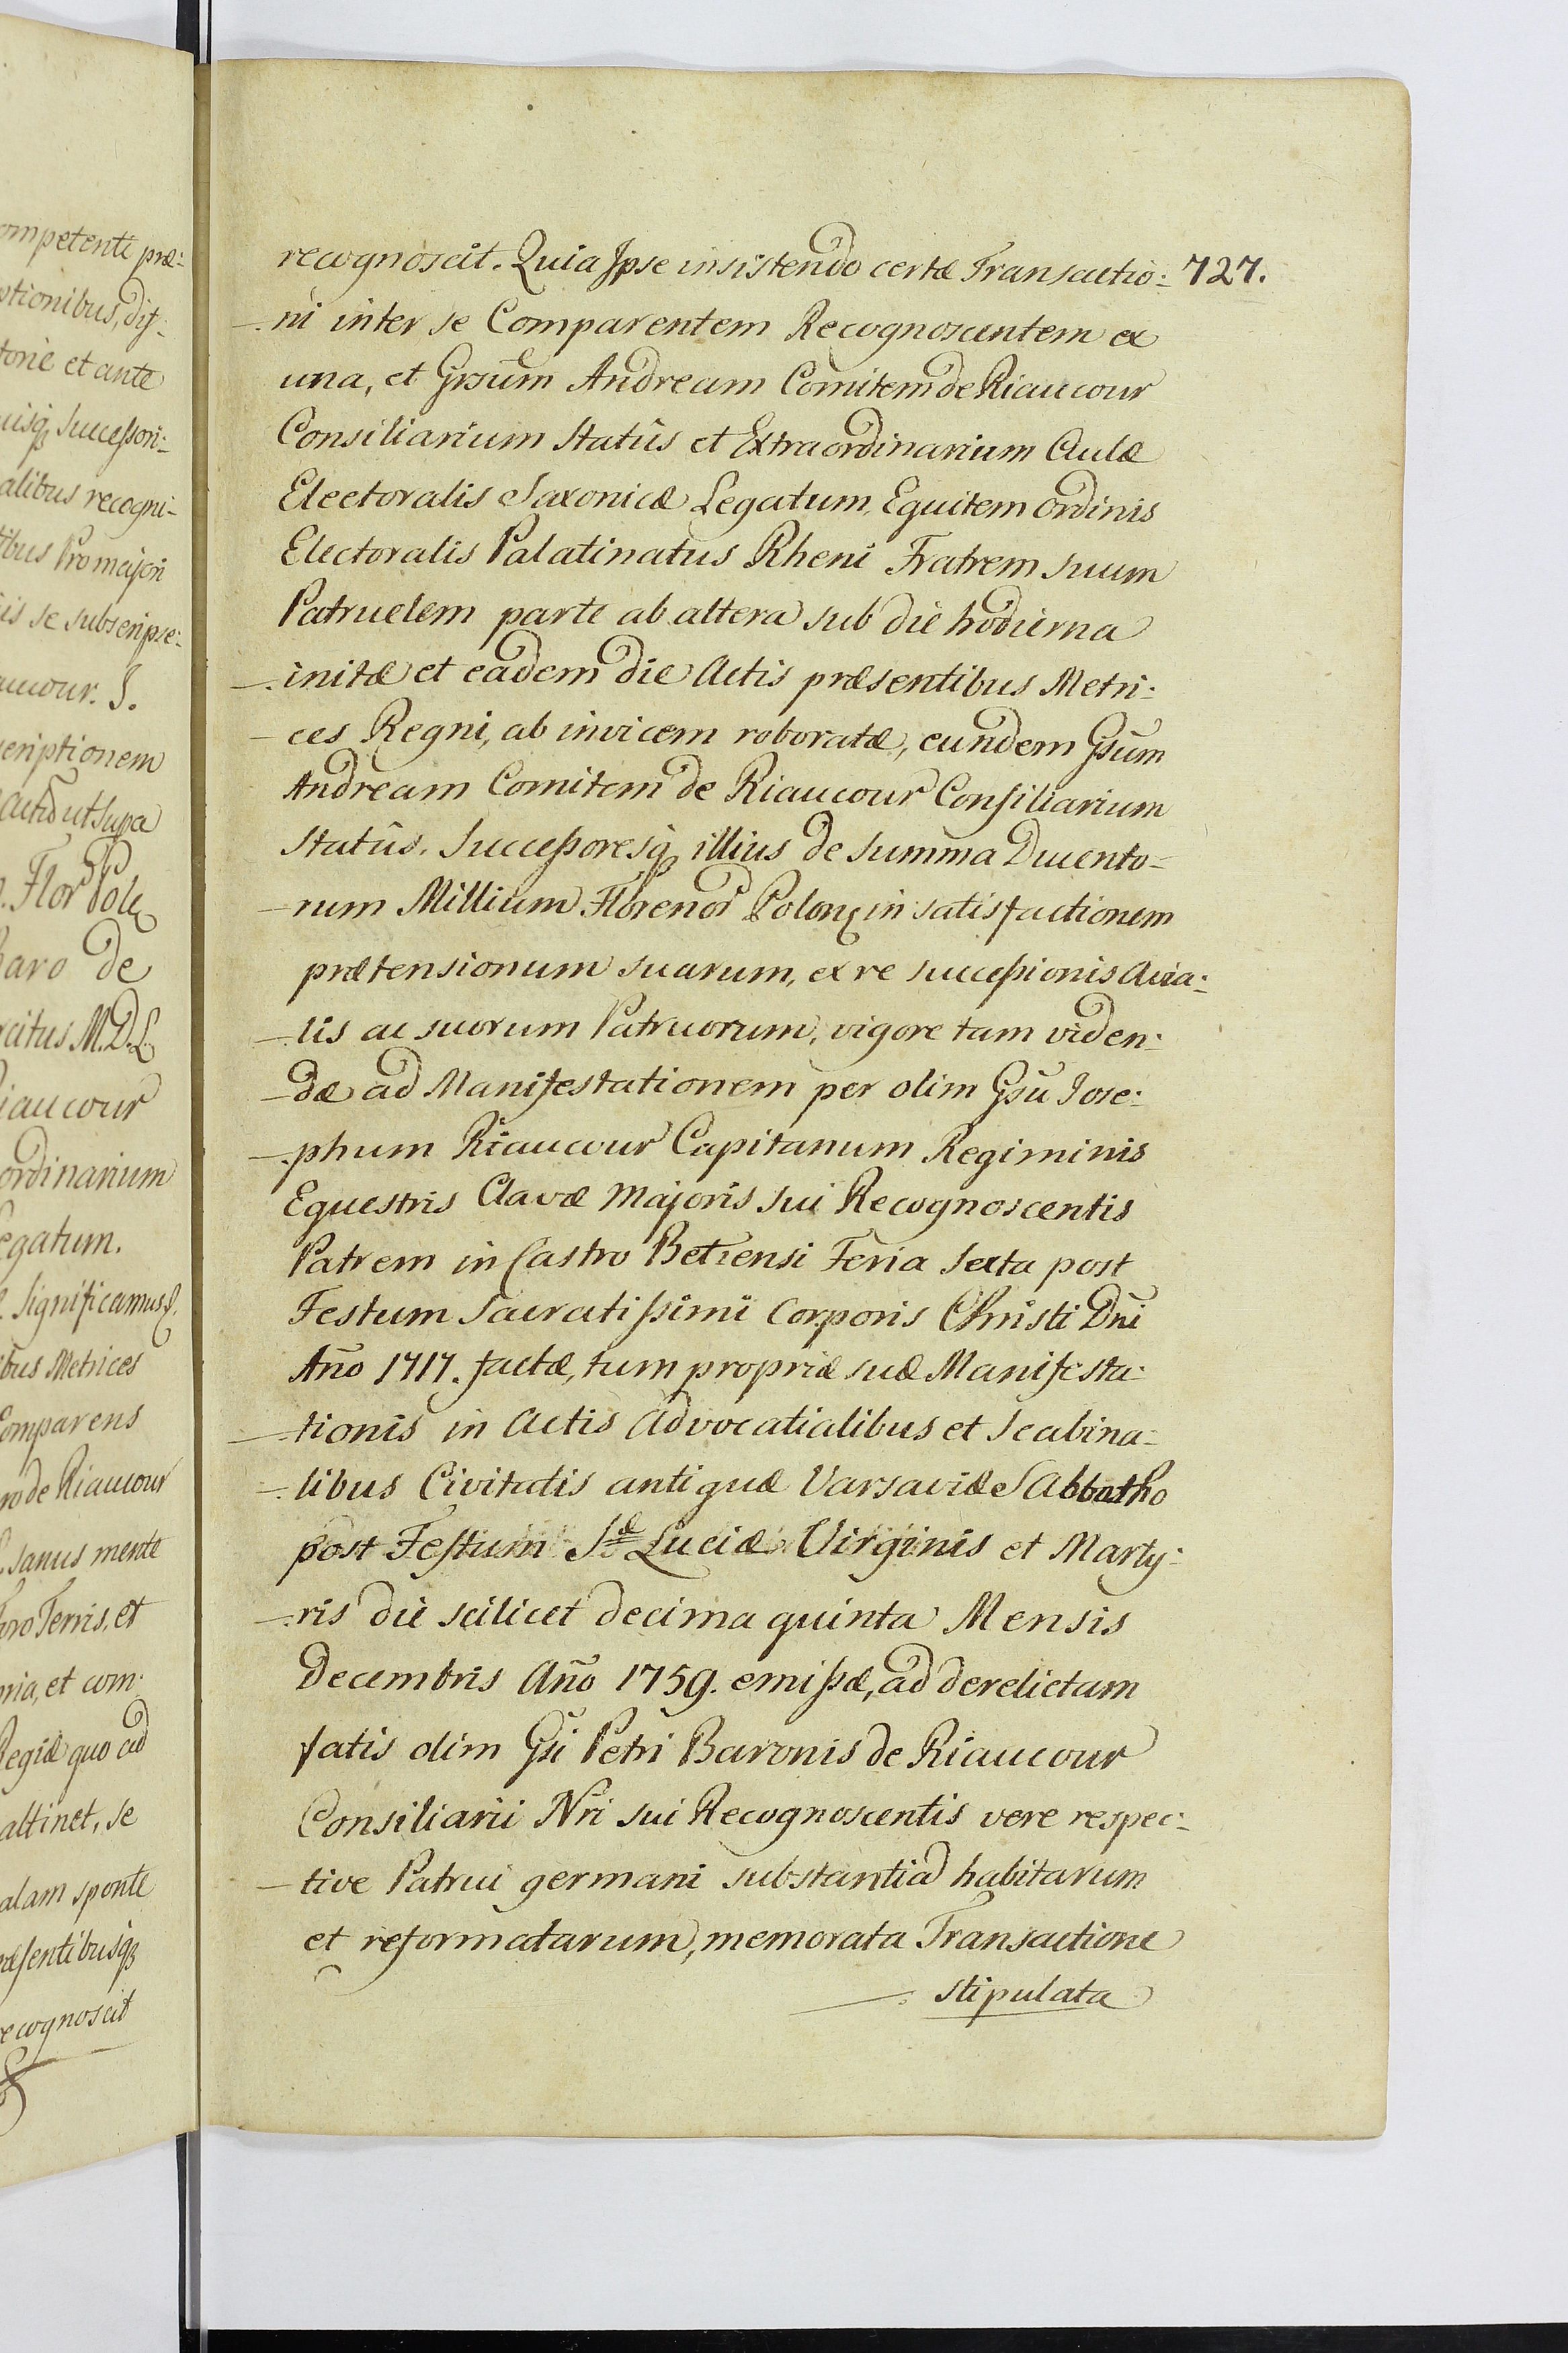 ompetenti præ:
ptionibus, dis:
torie et ante
uisq3 successori:
alibus recogni-
tibus Pro majori
is se subscripse:
aucour. S.
scriptionem
Flor Pole
baro de
M.D.L.
iaucour
ordinarium
egatum.
significamus
bus Metrices
Comparens
ro de Riaucour
sanus mente
Terris, et
ria, et com:
Regiæ quo ad
attinet, se
alam sponte
ræsentibusq3
recognoscit
727.
recognoscit. Quia Ipse insistendo certæ Transactio:
ni inter se Comparentem Recognoscentem ex
una, et Grsum Andream Comitem de Riaucour
Consiliarium Statûs et Extraordinarium Aulæ
Electoralis Saxonicæ Legatum, Equitem Ordinis
Electoralis Palatinatus Rheni Fratrem suum
Patruelem parte ab altera sub die hodierna
initæ et eadem die Actis præsentibus Metri:
ces Regni, ab invicem roboratæ, eundem Gsum
Andream Comitem de Riaucour Consiliarium
Statûs. Successoresq3 illius de Summa Ducento=
rum Millium Florenor Polon in satisfactionem
prætensionum suarum, ex re successionis Avia:
lis ac suorum Patruorum, vigore tam viden:
dæ ad Manifestationem per olim Gsu Jose:
phum Riaucour Capitanum Regiminis
Equestris Clavæ Majoris sui Recognoscentis
Patrem in Castro Betiensi Feria sexta post
Festum Sacratissimi Corporis Christi Dni
Año 1717. factæ, tum propriæ suæ Manifesta:
tionis in Actis Advocatialibus et Scabina:
libus Civitatis antiquæ Varsaviæ Sabbatho
post Festum Stæ Luciæ Virginis et Marty:
ris die scilicet decima quinta Mensis
Decembris Año 1759. emissæ, ad derelictam
fatis olim Gsi Petri Baronis de Riaucour
Consiliarii Nri sui Recognoscentis vere respec:
tive Patrui germani substantiã habitarum
et reformatarum, memorata Transactione
stipulata